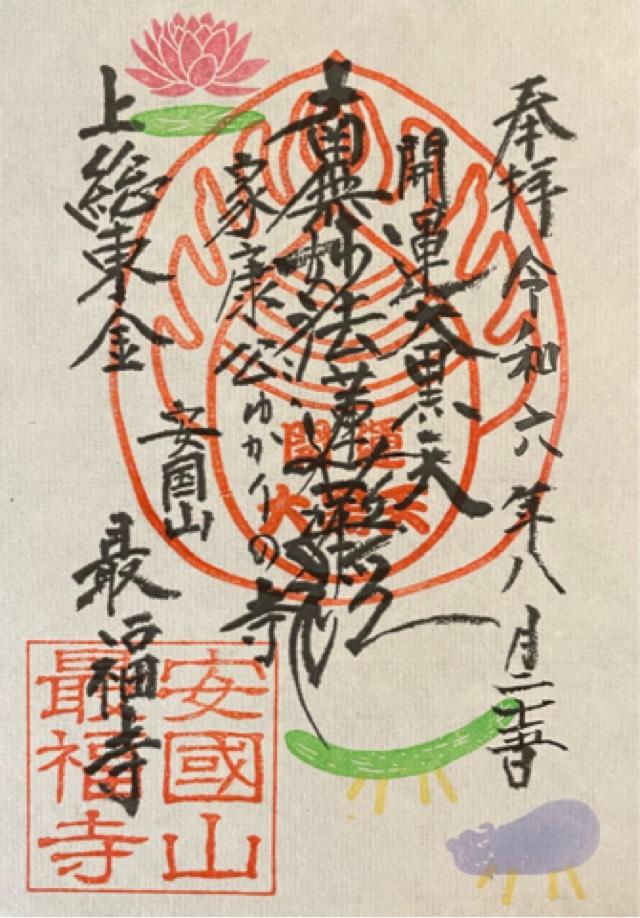 奉拝 令和六年八月二十五日
開運大黒天
南無妙法蓮華経
家康公ゆかりの寺
安国山
上総東金
最福寺
開運
大黒天
安國山
最福寺